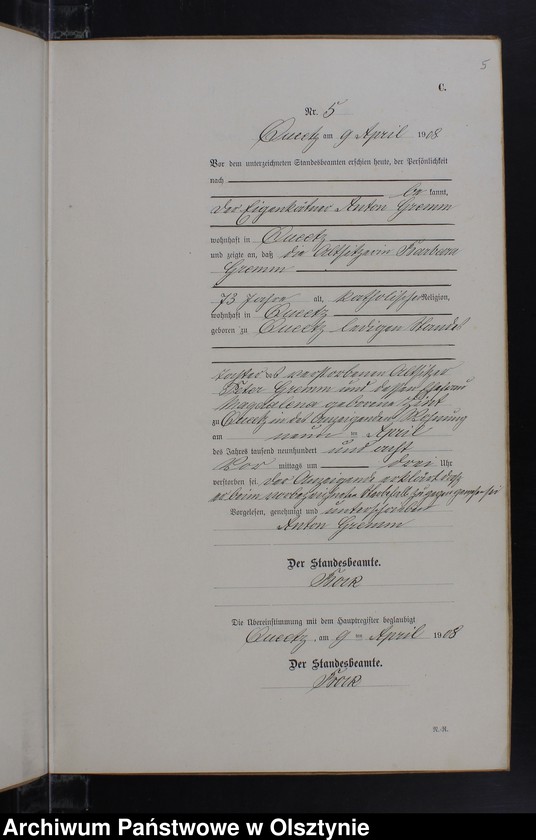 5
C.
Nr. 5
Queetz am 9 April 1908
Vor dem unterzeichneten Standesbeamten erschien heute, der Persönlichkeit
nach
be kannt,
der Eigenkätner Anton Gremm
wohnhaft in Queetz
und zeigte an, daß die Altsitzerin Barbara
Gremm
73 Jahre alt, katholischer Religion,
wohnhaft in Queetz
geboren zu Queetz ledigen Standes
Tochter des verstorbenen Altsitzer
Peter Gremm und dessen Ehefrau
Magdalena geborene
zu Queetz in des Anzeigenden Wohnung
am neun ten April
des Jahres tausend neunhundert und acht
Vor mittags um drei Uhr
verstorben sei Der Anzeigende erklärt daß
er beim vorbezeichneten Sterbefalle zugegen gewesen sei
Vorgelesen, genehmigt und unterschrieben
Anton Gremm
Der Standesbeamte.
Die Übereinstimmung mit dem Hauptregister beglaubigt
Queetz, am 9 ten April 1908
Der Standesbeamte.
N.-R.
Archiwum Państwowe w Olsztynie